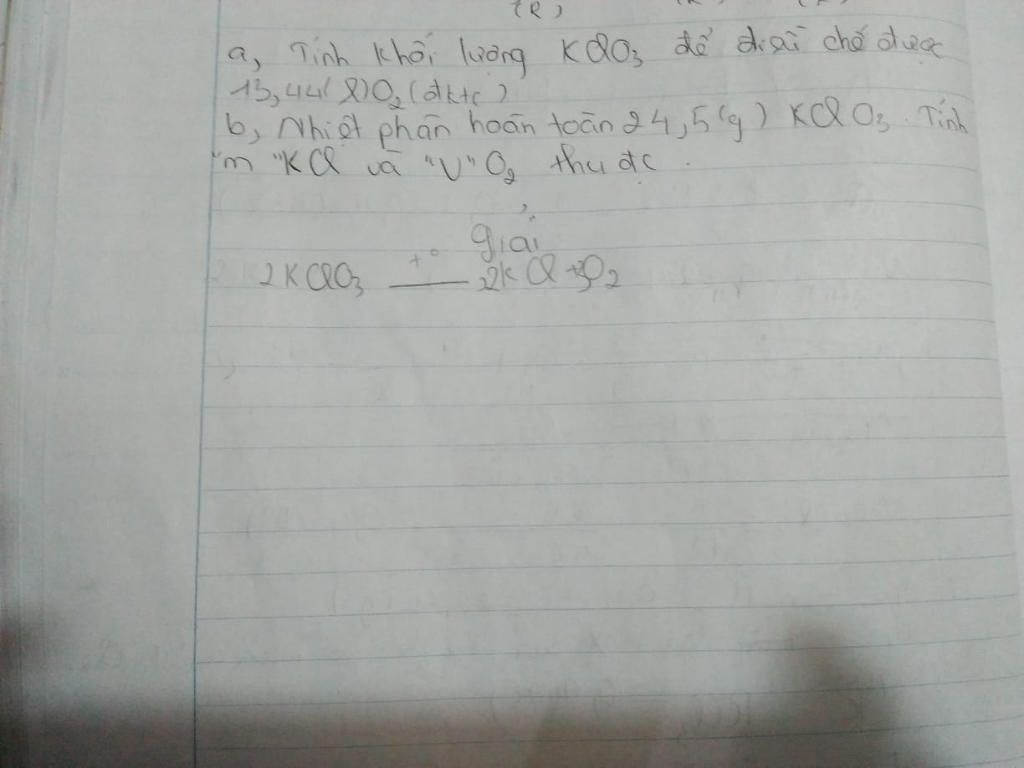 (R) (R) (R)
a, Tính khối lượng KClO3 để điều chế được
13,44(l)O2(đktc)
b, Nhiệt phân hoàn toàn 24,5(g) KClO3. Tính
"m "KCl và "V" O2 thu đc.
giải
2KClO3 t° 2KCl + 3O2